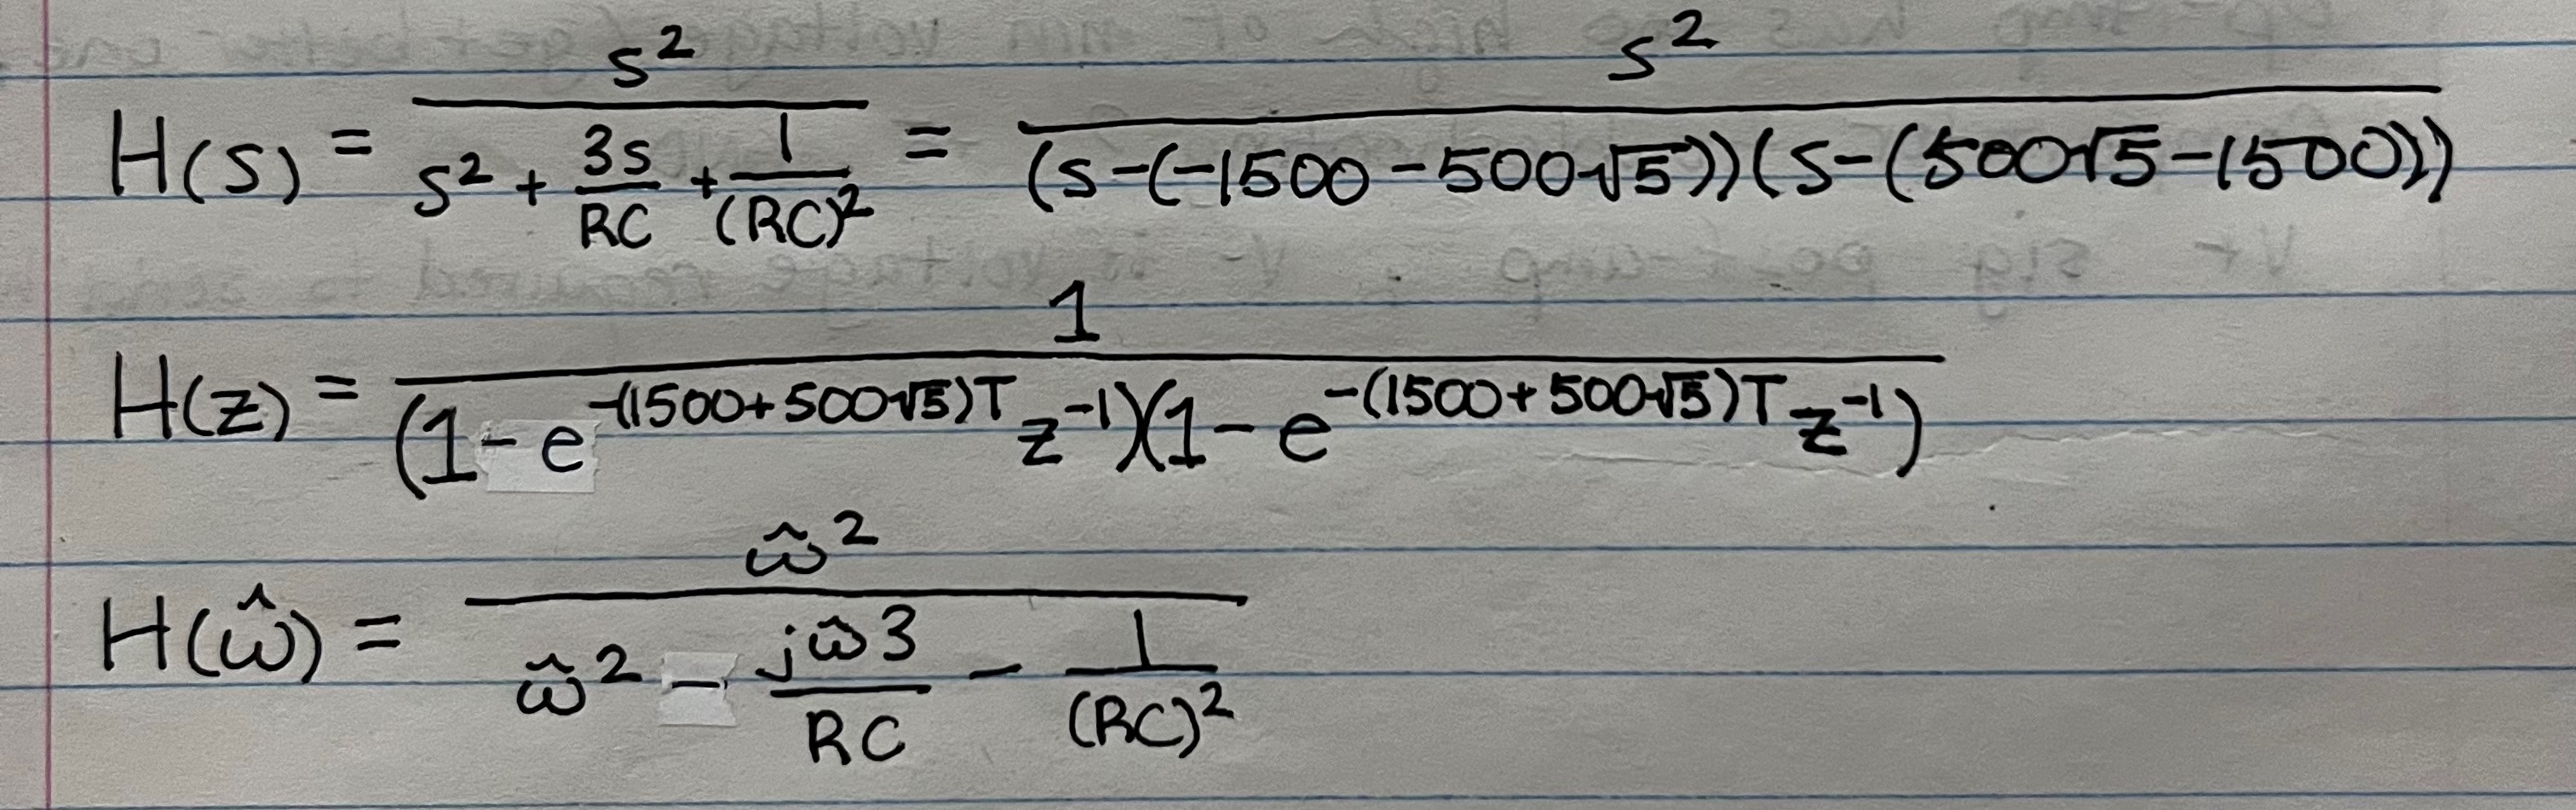 H(s) = s² / (s² + 3s/RC + 1/(RC)²) = s² / ((s-(-1500-500√5))(s-(500√5-1500)))
H(z) = 1 / ((1-e^(-(1500+500√5)T) z⁻¹)(1-e^(-(1500+500√5)T) z⁻¹))
H(ω̂) = ω̂² / (ω̂² - jω̂3/RC - 1/(RC)²)